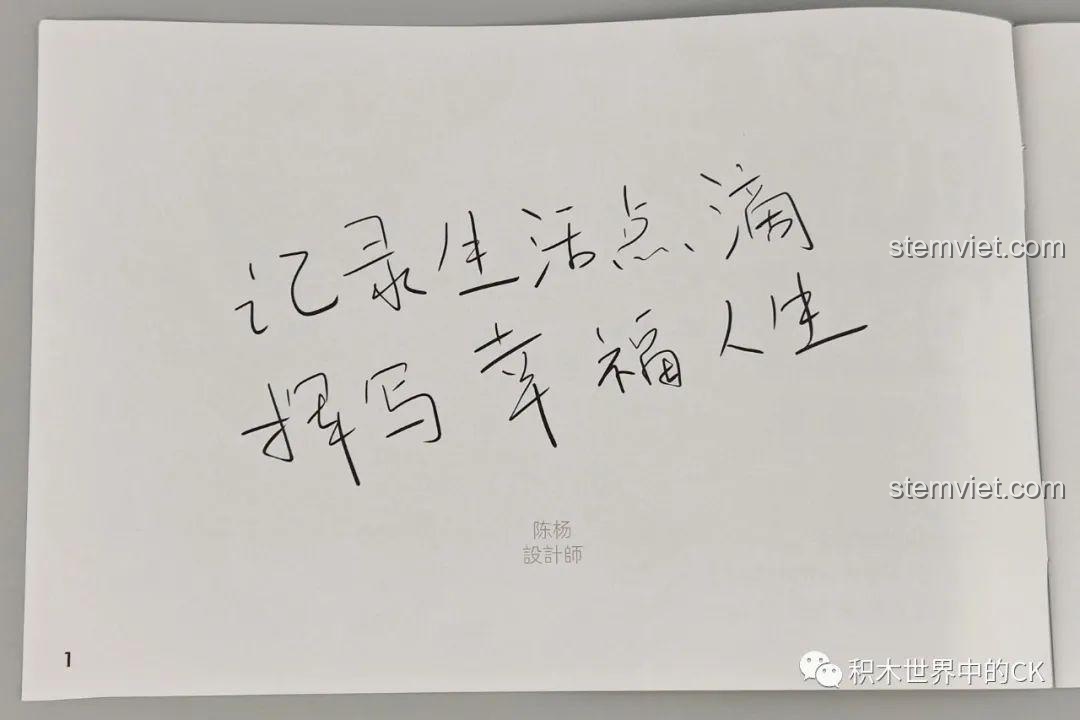 记录生活点滴
挥写幸福人生
陈杨
設計師
1
stemviet.com
stemviet.com
积木世界中的CK